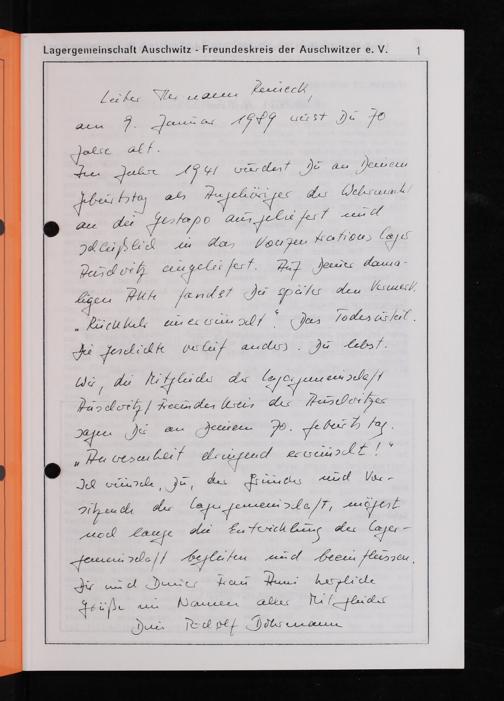 Lagergemeinschaft Auschwitz - Freundeskreis der Auschwitzer e. V. 1
Lieber Hermann Reineck,
am 9. Januar 1989 wirst Du 70
Jahre alt.
Im Jahre 1941 wurdest Du an Deinem
Geburtstag als Angehöriger der Wehrmacht
an die Gestapo ausgeliefert und
schließlich in das Konzentrationslager
Auschwitz eingeliefert. Auf Deiner dama-
ligen Akte fandst Du später den Vermerk
„Rückkehr unerwünscht". Das Todesurteil.
Die Geschichte verlief anders. Du lebst.
Wir, die Mitglieder der Lagergemeinschaft
Auschwitz/Freundeskreis der Auschwitzer
sagen Dir an Deinem 70. Geburtstag.
„Anwesenheit dringend erwünscht!"
Ich wünsche, Du, der Gründer und Vor-
sitzende der Lagergemeinschaft, mögest
noch lange die Entwicklung der Lager-
gemeinschaft begleiten und beeinflussen.
Dir und Deiner Frau Anni herzliche
Grüße im Namen aller Mitglieder
Dein Rudolf Dohrmann